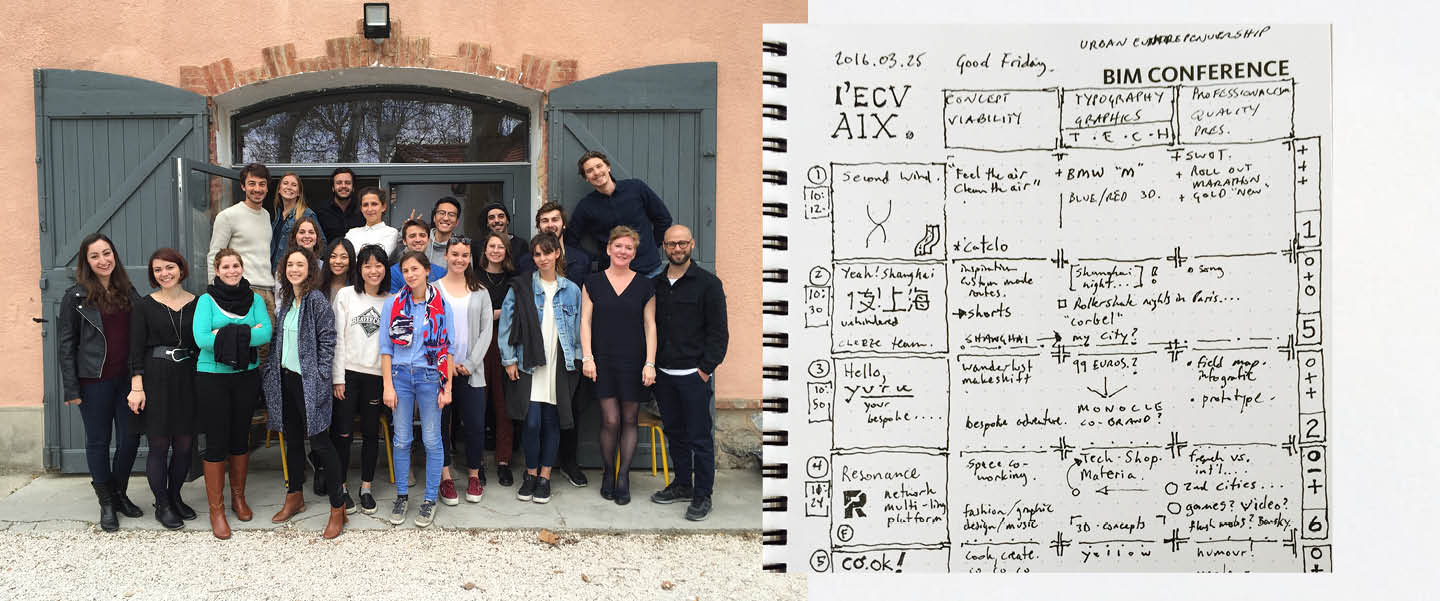 URBAN ENTREPENUERSHIP
2016.03.25 Good Friday.
BIM CONFERENCE
l'ECV
AIX.
CONCEPT
VIABILITY
TYPOGRAPHY
GRAPHICS
T.E.C.H
PROFESSIONALISM
QUALITY
PRES.
1
10:
12.
Second Wind.
"Feel the air
Clean the air"
*Catclo
+ BMW "M"
BLUE/RED 3D.
+ SWOT.
+ ROLL OUT
MARATHON
+ GOLD "New"
+++
1
2
10:
30
Yeah! Shanghai
上海
unhindered
team.
inspiration
custom made
routes.
→ shorts
.SHANGHAI →
[Shanghai
night...]
Rollerskate nights in Paris....
"corbel"
my city?
song.
0+0
5
3
10:
50
Hello,
yuru
your
bespoke....
Wanderlust
makeshift
bespoke adventure.
99 EUROS.?
MONOCLE
CO-BRAND?
• field map.
• prototype -
0++
2
4
Resonance
R
network
multi-ling
platform
F
Space co-
working.
fashion/graphic
design/music
Tech-Shop.
Materia.
3D-concepts
french vs.
int'l...
2nd Cities....
games? Video?
flash mobs? Banksy.
0-+
6
5
co.ok!
cook, create.
yellow
humour!
0